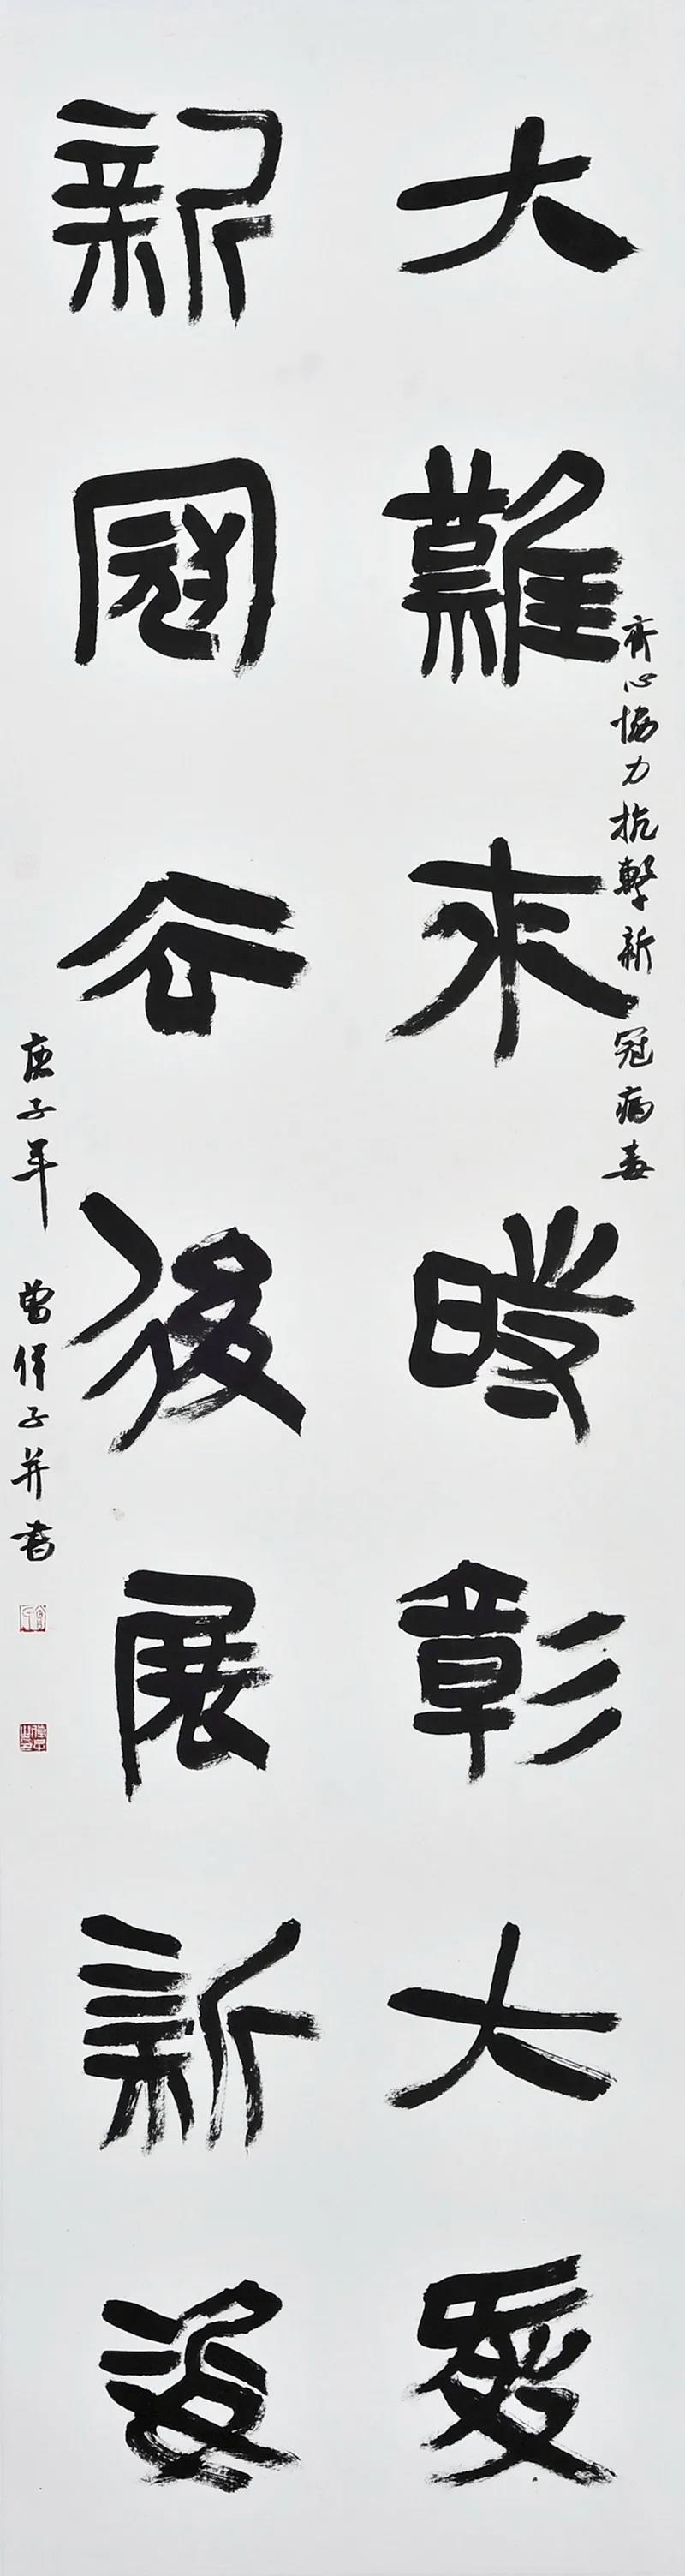 大難來時彰大愛
新冠谷後展新姿
齊心協力抗擊新冠病毒
庚子年 曾子并書